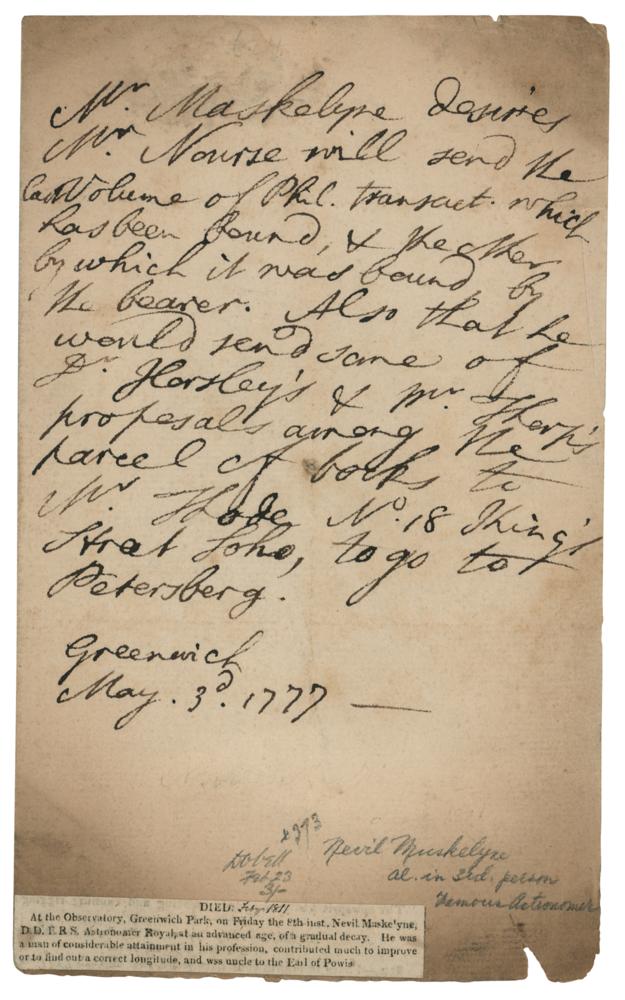 Mr. Maskelyne desires
Mr. Nourse will send the
last Volume of Phil. transact. which
has been bound, & the other
by which it was bound by
the bearer. Also that he
would send some of
Dr. Horsley's & Mr. Thorp's
proposals among the
parcel of books to
Mr. No. 18 King's
Street Soho, to go to
Petersberg.
Greenwich
May. 3d. 1777 —
x373
Dobell
Feb 23
3/-
Nevil Muskelyne
al. in 3rd. person
Famous Astronomer
DIED. Feby. 1811
At the Observatory, Greenwich Park, on Friday the 8th inst. Nevil Maske'yne,
D.D. F.R.S. Astronomer Royal, at an advanced age, of a gradual decay. He was
a man of considerable attainment in his profession, contributed much to improve
or to find out a correct longitude, and was uncle to the Earl of Powis